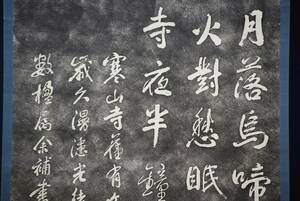 月落烏啼
火對愁眠
寺夜半鐘
寒山寺舊有
歲久漫漶光緒
數楹屬余補書